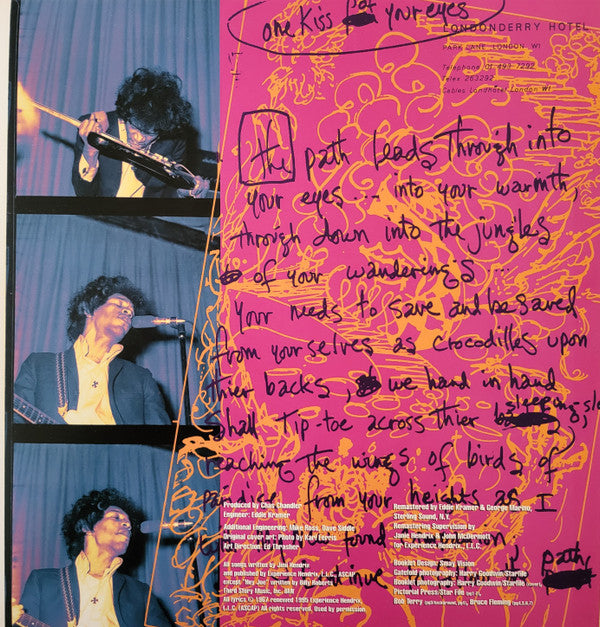 one Kiss your eyes
LONDONDERRY HOTEL
PARK LANE, LONDON W1
Telephone 01 493 7292
Telex 263292
Cables Londhotel London W1
the path leads through into
your eyes ... into your warmth,
through down into the jungles
of your wanderings ....
Your needs to save and be saved
from your selves as crocodilles upon
thier backs, we hand in hand
shall tip-toe across thier sleeping,
reaching the wings of birds of
paradise from your heights as I
found
path,
Produced by Chas Chandler
Engineer: Eddie Kramer
Additional Engineering: Mike Ross, Dave Siddle
Original cover art: Photo by Karl Ferris
Art Direction: Ed Thrasher
All songs written by Jimi Hendrix
and published by Experience Hendrix, L.L.C. (ASCAP)
except "Hey Joe" written by Billy Roberts
Third Story Music, Inc. BMI
All lyrics © 1967 renewed 1995 Experience Hendrix,
L.L.C. (ASCAP) All rights reserved. Used by permission
Remastered by Eddie Kramer & George Marino;
Sterling Sound, N.Y.
Remastering Supervision by
Janie Hendrix & John McDermott
for Experience Hendrix, L.L.C.
Booklet Design: Smay Vision
Gatefold photography: Harry Goodwin/Starfile
Booklet photography: Harry Goodwin/Starfile
Pictorial Press/Star File
Bob Terry Bruce Fleming